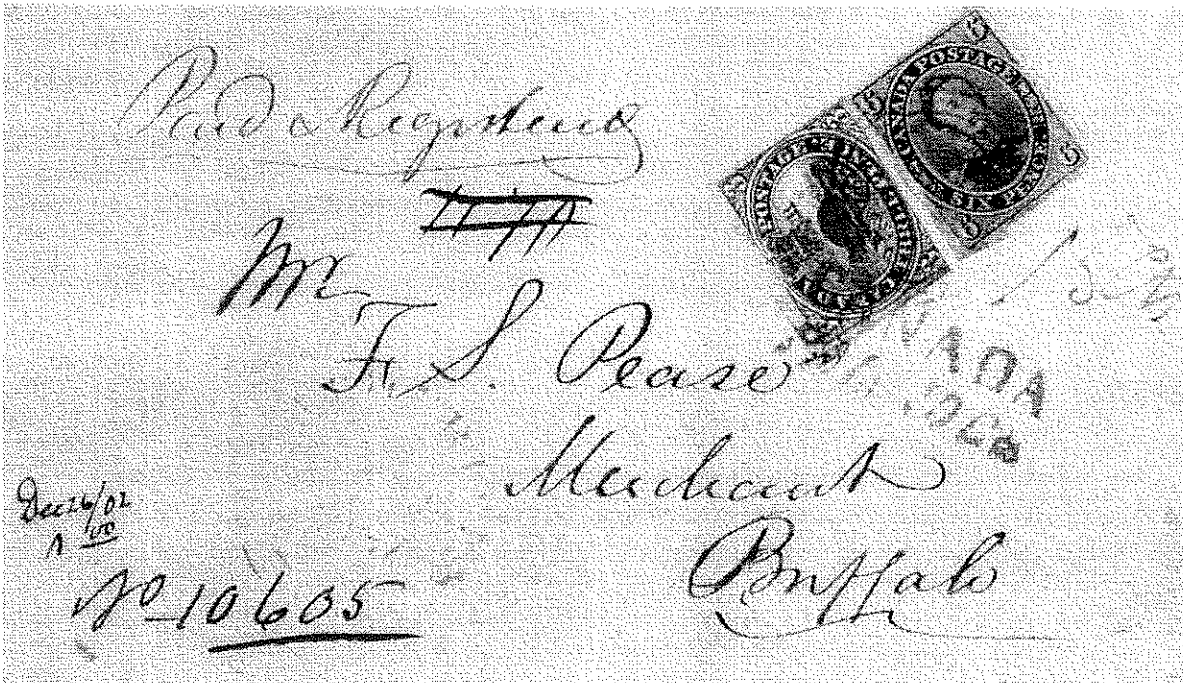 Paid & Registered
CANADA POSTAGE SIX PENCE
CANADA POSTAGE THREE PENCE
Mr
F. S. Pease
Merchant
Buffalo
Dec 26/02
No 10605